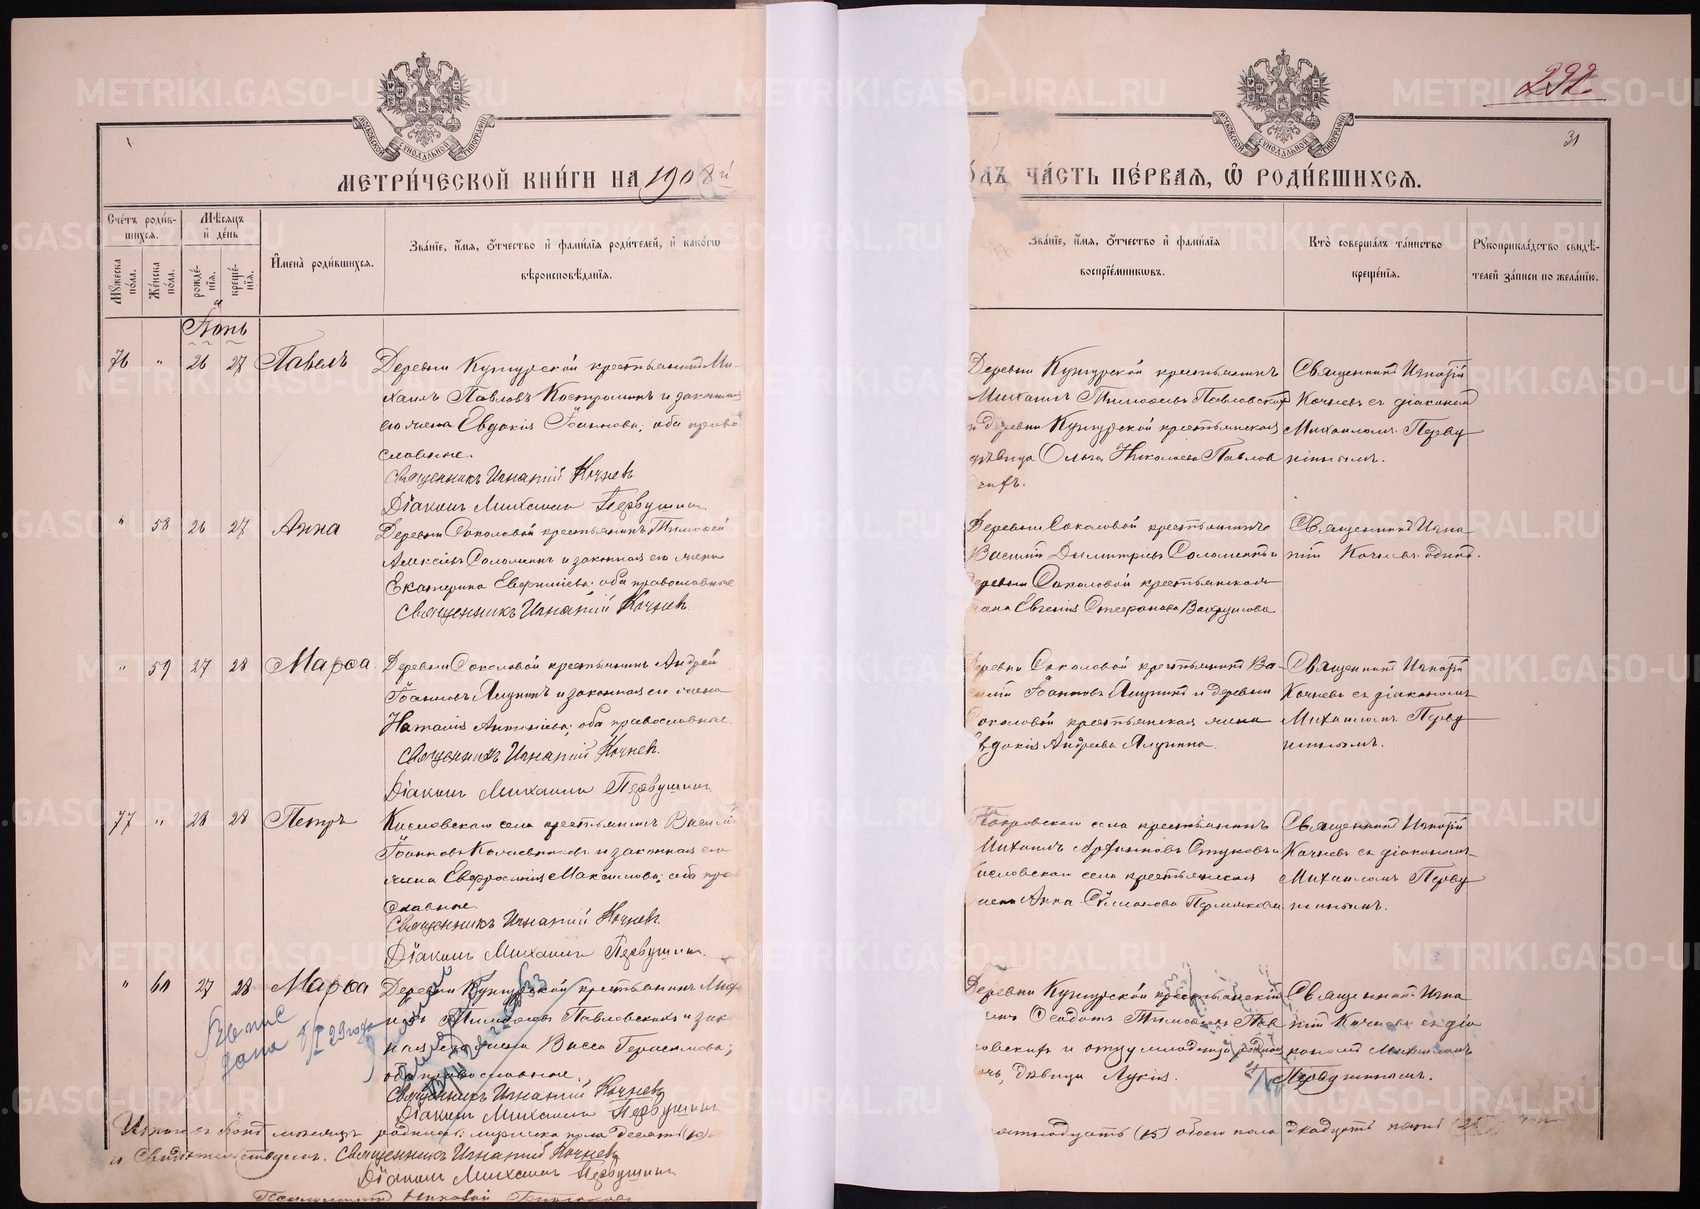 292
31
МЕТРИ́ЧЕСКОЙ КНИ́ГИ НА 1908й
ЧА́СТЬ ПЕ́РВАЯ, Ѡ РОДИ́ВШИХСЯ.
Счетъ роди́вшихся.
Мꙋжеска по́ла.
Же́нска по́ла.
Мѣсяцъ и де́нь
рожде́нія.
креще́нія.
Имена̀ роди́вшихся.
Зва́ніе, и́мя, о́тчество и фами́лія роди́телей, и како́гѡ
вѣроисповѣ́данія.
Зва́ніе, и́мя, о́тчество и фами́лія
воспріе́мникѡвъ.
Кто̀ соверша́лъ та́инство
креще́нія.
Рꙋкоприкла́дство свидѣ́-
телей за́писи по жела́нію.
Іюнь
76 " 26 27 Павелъ
Деревни Кунгурской крестьянинъ Ми-
хаилъ Павловъ Костроминъ и законная
его жена Евдокія Іоаннова, оба право
славные.
Священникъ Игнатій Кочневъ
Діаконъ Михаилъ Первушинъ
Деревни Кунгурской крестьянинъ
Михаилъ Тимоѳеевъ Павловскій
и деревни Кунгурской крестьянская
дѣвица Ольга Николаева Павлов
Священникъ Игнатій
Кочневъ съ діакономъ
Михаиломъ Перву
шинымъ.
" 58 26 27 Анна
Деревни Соколовой крестьянинъ Тимоѳей
Алексѣевъ Соломеинъ и законная его жена
Екатерина Евфиміева, оба православные
Священникъ Игнатій Кочневъ
Деревни Соколовой крестьянинъ
Василій Димитріевъ Соломеинъ и
деревни Соколовой крестьянская
жена Евгенія Стефанова Вахрушева
Священникъ Игна
тій Кочневъ одинъ.
" 59 27 28 Марѳа
Деревни Соколовой крестьянинъ Андрей
Іоанновъ Ялунинъ и законная его жена
Наталія Антоніева; оба православные.
Священникъ Игнатій Кочневъ.
Діаконъ Михаилъ Первушинъ
Деревни Соколовой крестьянинъ Ва-
силій Іоанновъ Ялунинъ и деревни
Соколовой крестьянская жена
Евдокія Андреева Ялунина.
Священникъ Игнатій
Кочневъ съ діакономъ
Михаиломъ Перву
шинымъ.
77 " 28 28 Петръ
Кисловскаго села крестьянинъ Василій
Іоанновъ и законная его
жена Евфросинія Максимова; оба пра
славные.
Священникъ Игнатій Кочневъ.
Діаконъ Михаилъ Первушинъ.
Покровскаго села крестьянинъ
Михаилъ и
Кисловскаго села крестьянская
жена Анна Симонова Пермякова
Священникъ Игнатій
Кочневъ съ діакономъ
Михаиломъ Перву
шинымъ.
" 60 27 28 Марѳа
Деревни Кунгурской крестьянинъ Миха
илъ Тимоѳеевъ Павловскихъ и зак
ная его жена Васса Герасимова;
оба православные.
Священникъ Игнатій Кочневъ
Діаконъ Михаилъ Первушинъ
Деревни Кунгурской крестьянскій
сынъ Тимоѳеевъ Пав
ловскихъ и
дочь, дѣвица Лукія.
Священникъ Игна
тій Кочневъ съ діа
кономъ Михаиломъ
Первушинымъ.
дана 29 года
Итого въ Іюнѣ мѣсяцѣ родилось мужеска пола десять (10)
пятнадцать (15) обоего пола двадцать пять (25)
и свидѣтельствуемъ. Священникъ Игнатій Кочневъ
Діаконъ Михаилъ Первушинъ
METRIKI.GASO-URAL.RU